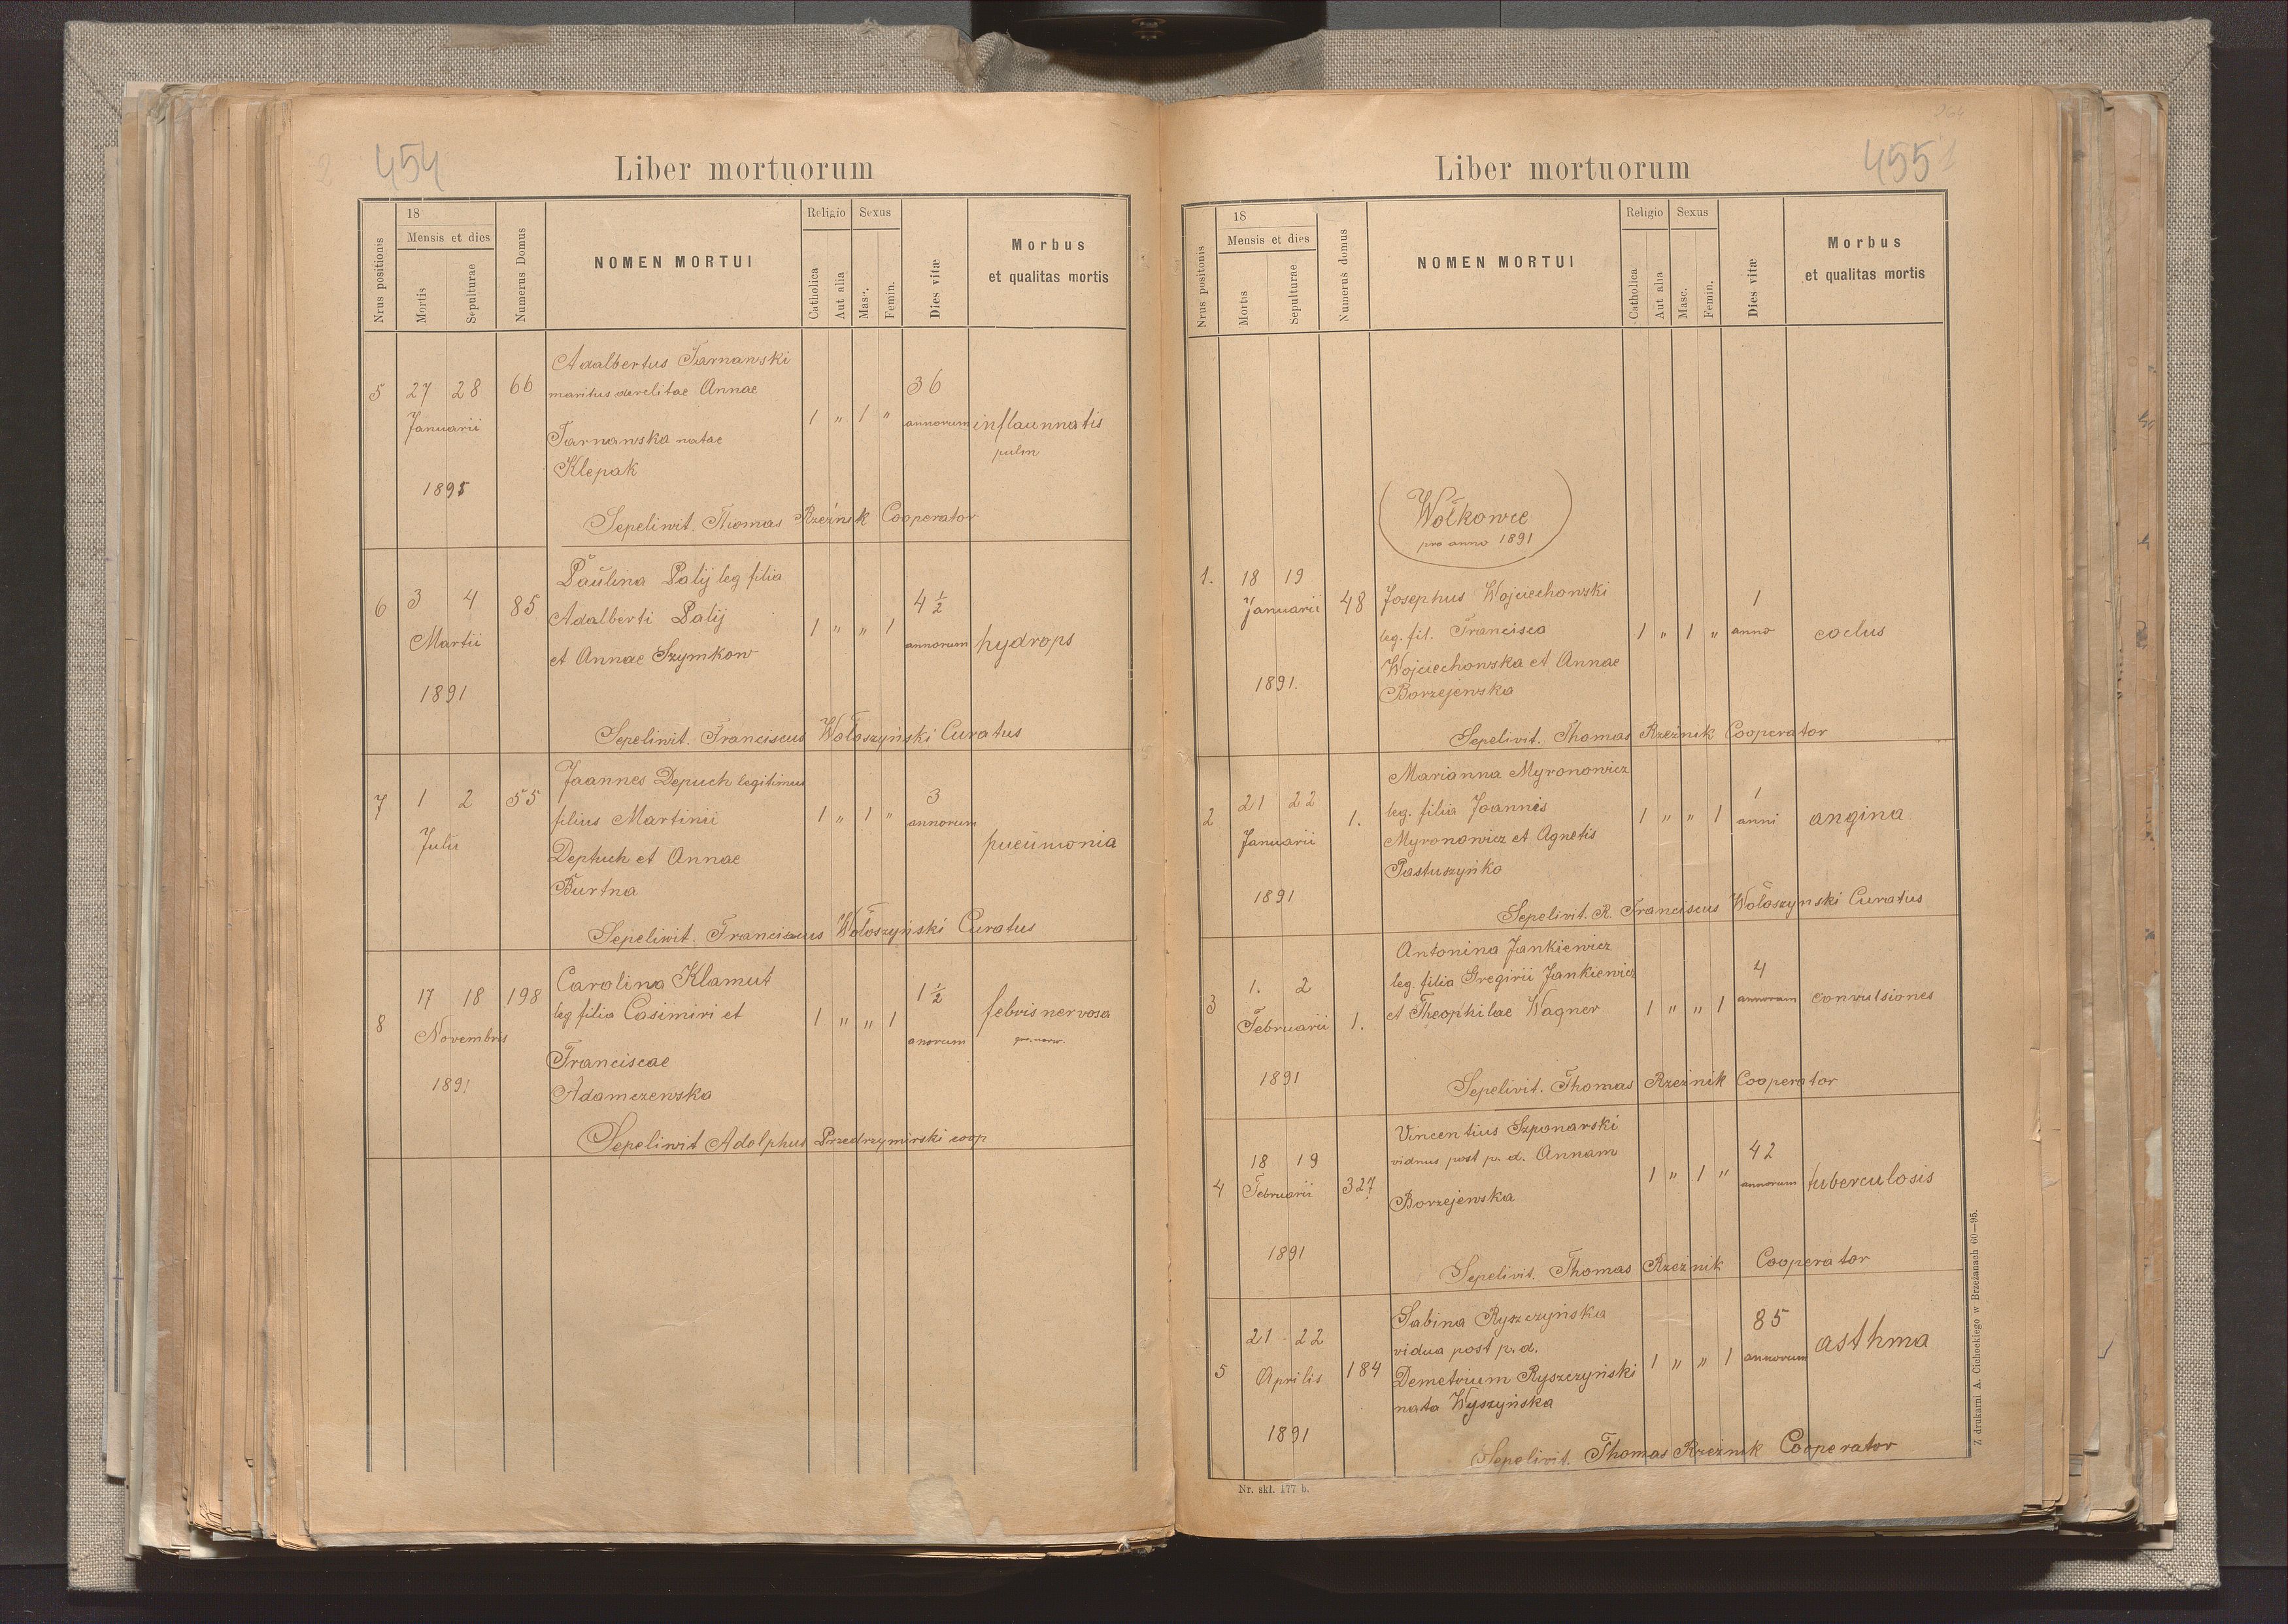 454
Liber mortuorum
Nrus positionis
18
Mensis et dies
Mortis
Sepulturae
Numerus Domus
NOMEN MORTUI
Religio
Catholica
Aut alia
Sexus
Masc.
Femin.
Dies vitæ
Morbus
et qualitas mortis
5 27 28 66 Adalbertus Tarnawski
maritus derelitae Annae
Januarii
Tarnawska natae
Klepak
1895
1 " 1 " 36
annorum inflaunnatis
pulm
Sepeliwit. Thomas Rzeźnik Cooperator
6 3 4 85 Paŭlina Palij leg filia
Adalberti Palij
Martii
et Annae Szymkow
1891
1 " " 1 4 1/2
annorum hydrops
Sepeliwit. Franciscus Wołoszyński Curatus
7 1 2 55 Joannes Depuch legitimus
filius Martinii
Julii
Deptuch et Annae
Burtna
1 " 1 " 3
annorum
pneŭmonia
Sepeliwit. Franciscus Wołoszyński Curatus
8 17 18 198 Carolina Klamut
leg filia Casimiri et
Novembris
Franciscae
1891
Adamczewska
1 " " 1 1 1/2
anorum
febris nervosa
Sepeliwit Adolphus Przedrzymirski coop
455
Liber mortuorum
Nrus positonis
18
Mensis et dies
Mortis
Sepulturae
Numerus domus
NOMEN MORTUI
Religio
Catholica
Aut alia
Sexus
Masc.
Femin.
Dies vitæ
Morbus
et qualitas mortis
Wołkowce
pro anno 1891
1. 18 19
Januarii 48 Josephus Wojciechowski
leg. fil. Francisca
Wojciechowska et Annae
1891.
Borzejewska
1 " 1 " 1
anno coclus
Sepelivit. Thomas Rzeźnik Cooperator
2 21 22
Januarii 1. Marianna Myronowicz
leg. filia Joannis
Myronowicz et Agnetis
Pastuszyńka
1891
1 " " 1 1
anni angina
Sepelivit. R. Franciscus Wołoszynski Curatus
3 1. 2
Februarii 1. Antonina Jankiewicz
leg. filia Gregirii Jankiewicz
et Theophilae Wagner
1891
1 " " 1 4
annorum convulsiones
Sepelivit. Thomas Rzeźnik Cooperator
4 18 19
Februarii 327 Vincentius Szponarski
vidnus post p. d. Annam
Borzejewska
1891
1 " 1 " 42
annorum tuberculosis
Sepelivit. Thomas Rzeźnik Cooperator
5 21 22
Aprilis 184 Sabina Ryszczyńska
vidua post p. d.
Demetrium Ryszczyński
nata Wyszyńska
1891
1 " " 1 85
annorum asthma
Sepelivit. Thomas Rzeźnik Cooperator
Nr. skł. 177 b.
Z drukarni A. Cichockiego w Brzeżanach 60—95.